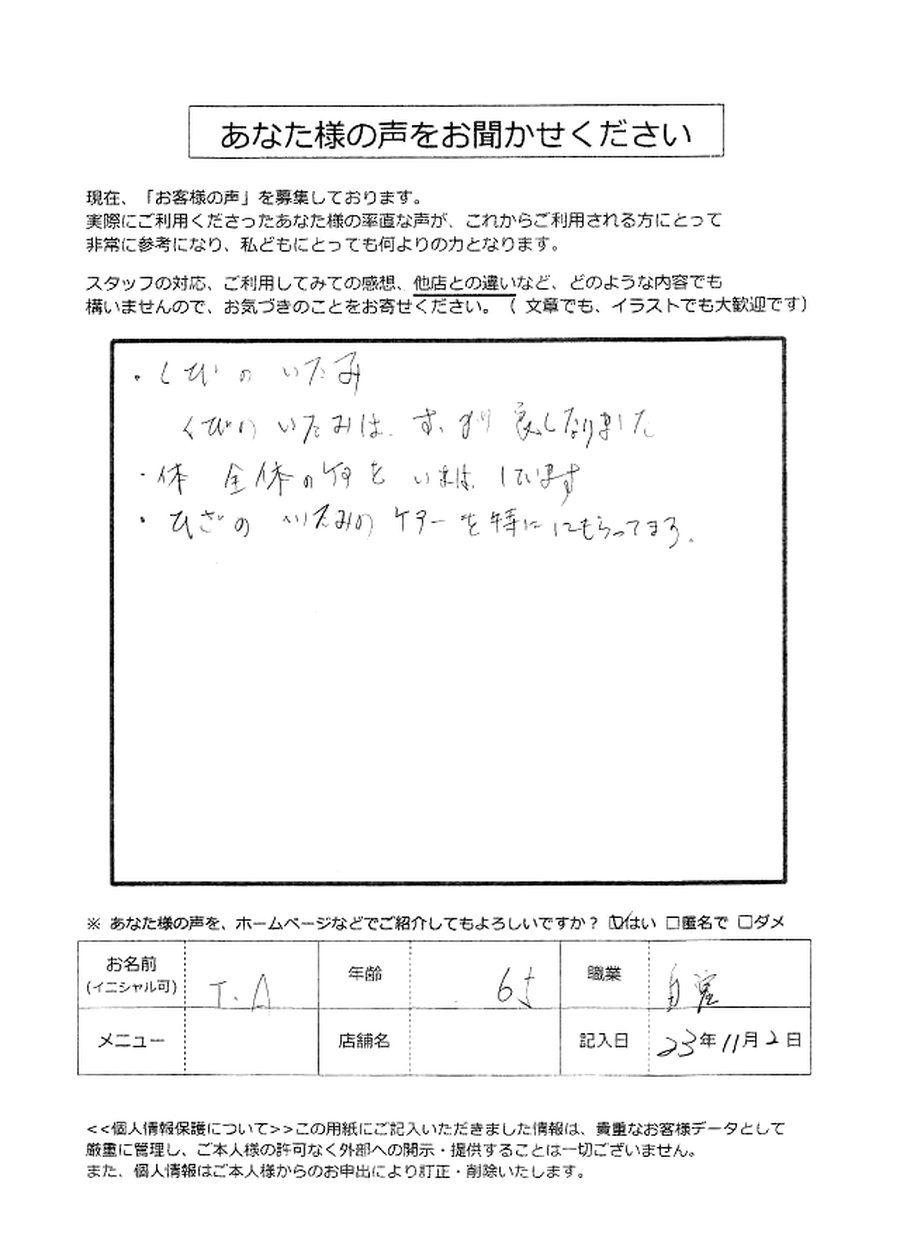 あなた様の声をお聞かせください
現在、「お客様の声」を募集しております。
実際にご利用くださったあなた様の率直な声が、これからご利用される方にとって
非常に参考になり、私どもにとっても何よりの力となります。
スタッフの対応、ご利用してみての感想、他店との違いなど、どのような内容でも
構いませんので、お気づきのことをお寄せください。（ 文章でも、イラストでも大歓迎です）
・くびの いたみ
くびの いたみは、すっかり 良くなりました
・体 全体のケアを いまは しています
・ひざの いたみの ケアーを特に にもらってまる。
※ あなた様の声を、ホームページなどでご紹介してもよろしいですか？ ☑はい □匿名で □ダメ
お名前 (イニシャル可) T.A 年齢 65 職業 自営
メニュー 店舗名 記入日 23年11月2日
<<個人情報保護について>>この用紙にご記入いただきました情報は、貴重なお客様データとして
厳重に管理し、ご本人様の許可なく外部への開示・提供することは一切ございません。
また、個人情報はご本人様からのお申出により訂正・削除いたします。